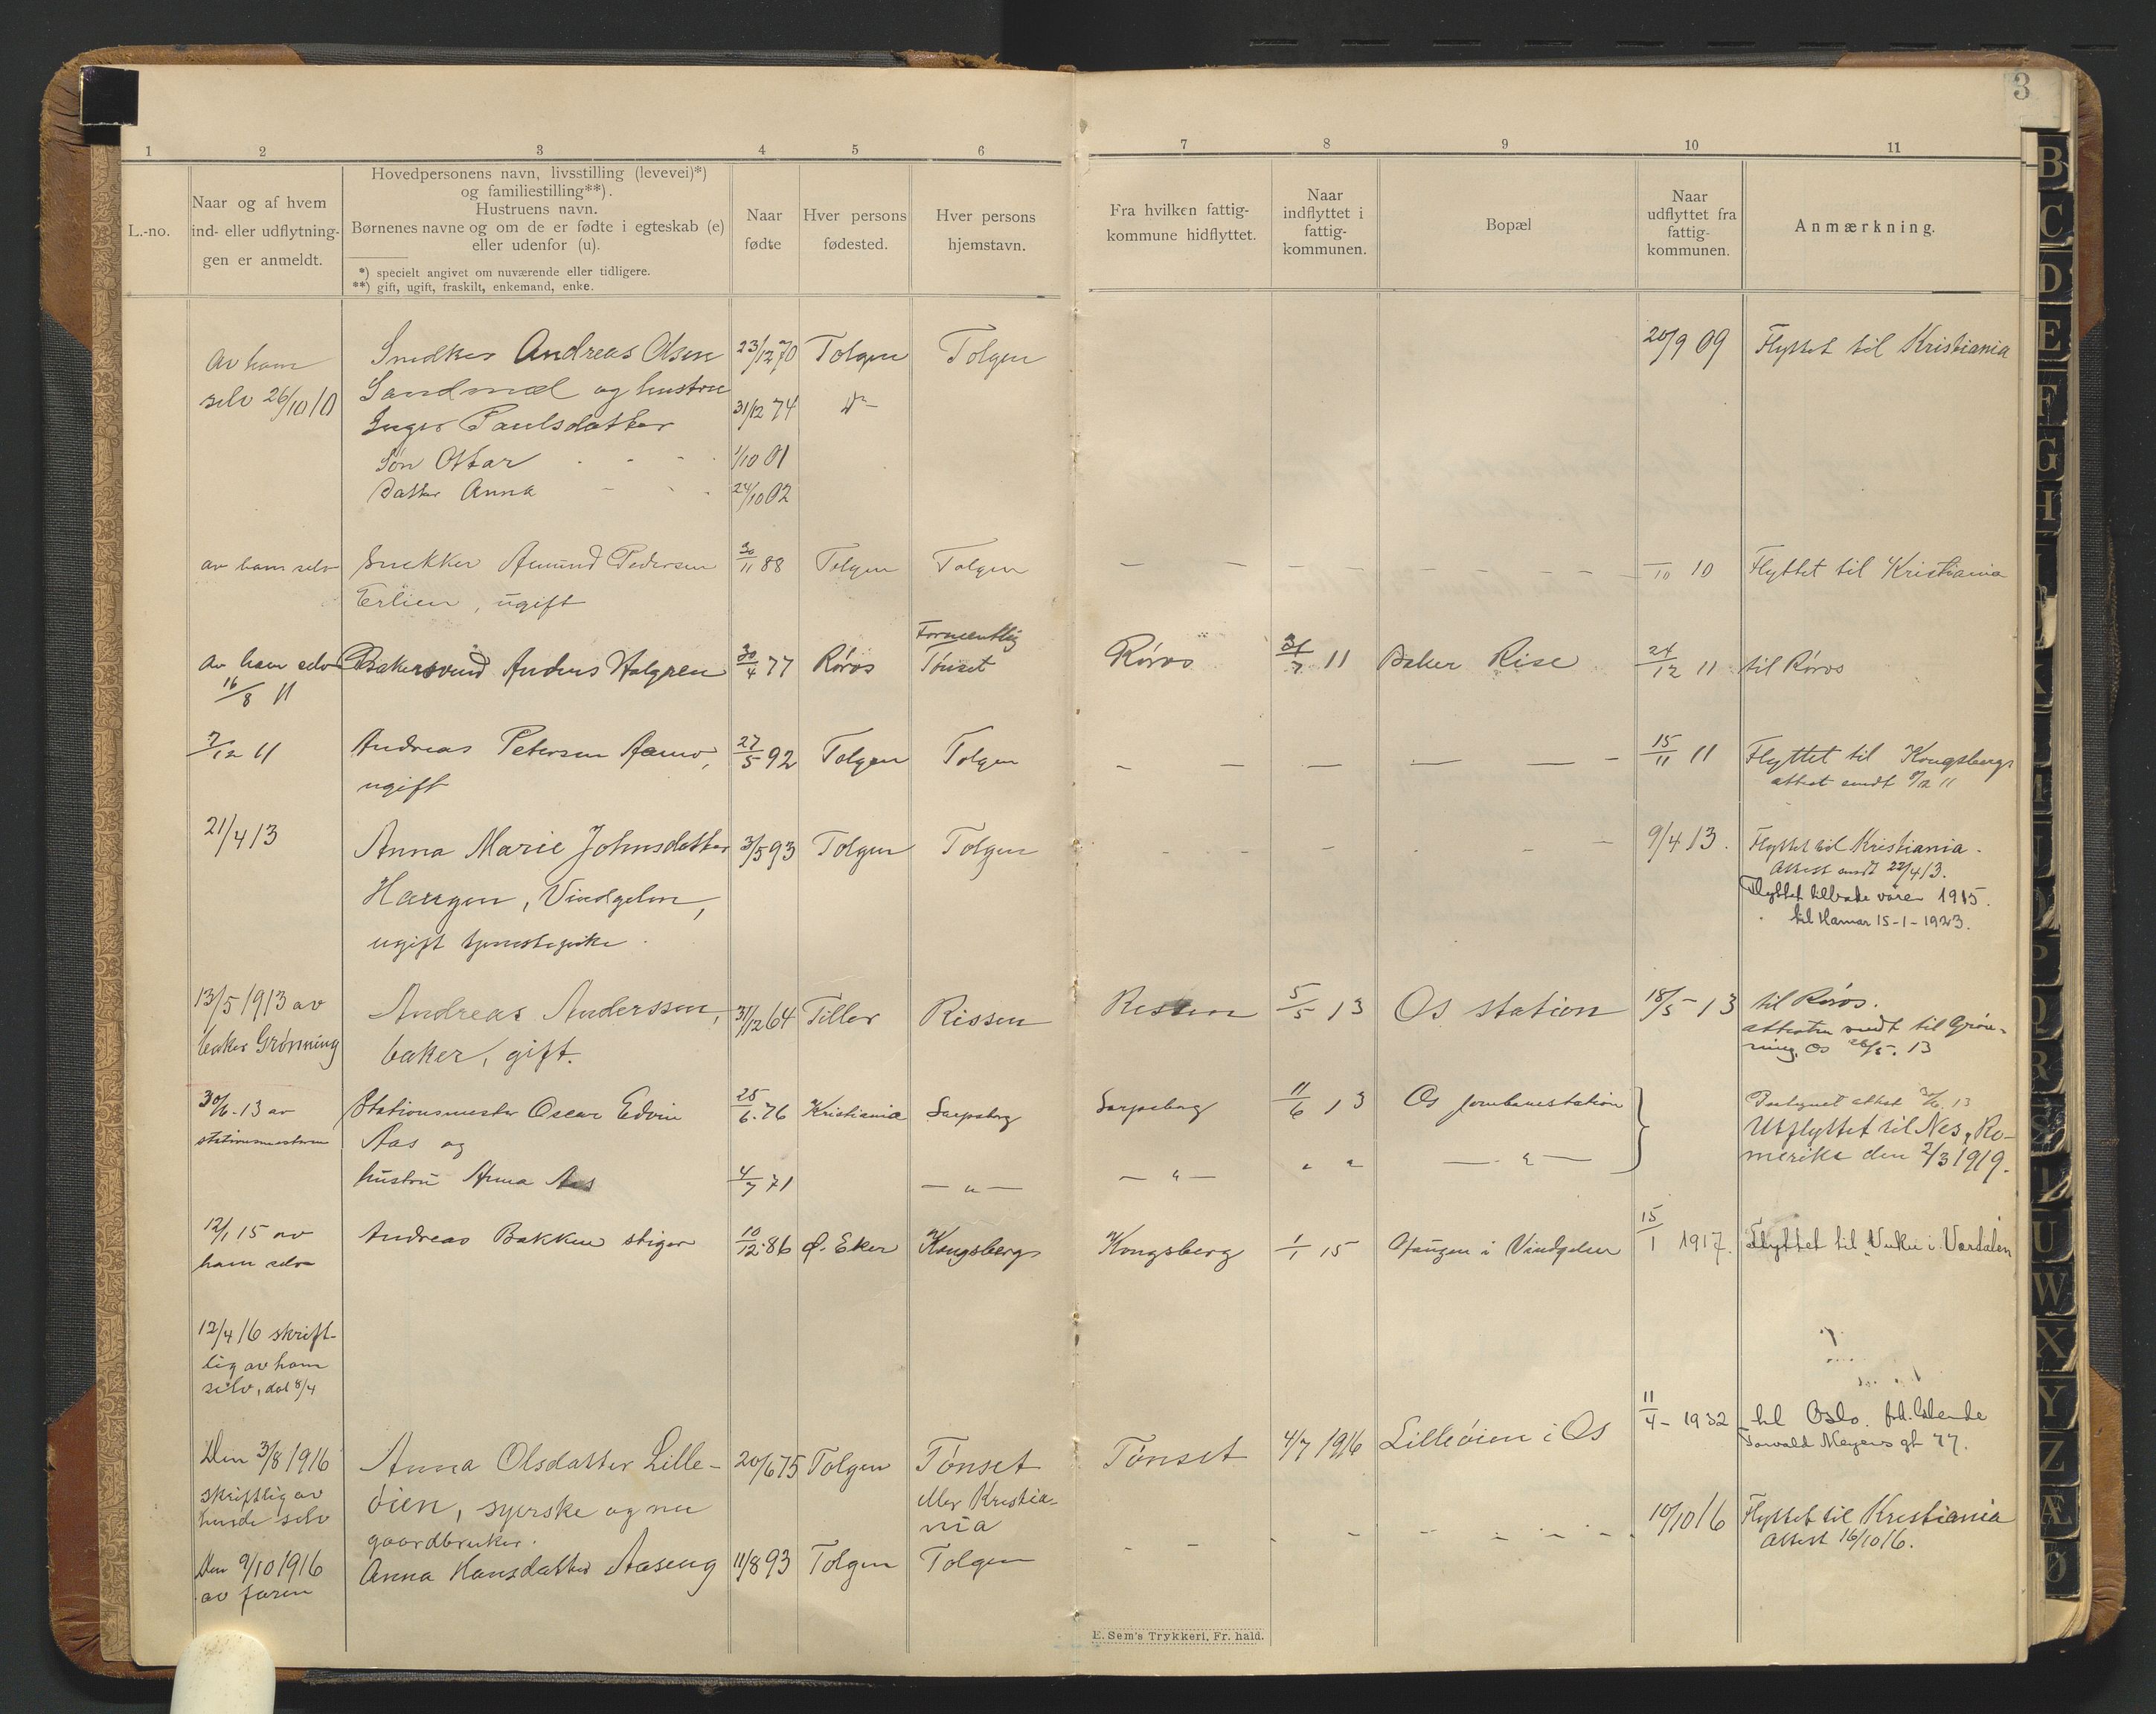 3
1 2 3 4 5 6 7 8 9 10 11
L.-no.
Naar og af hvem
ind- eller udflytnin-
gen er anmeldt.
Hovedpersonens navn, livsstilling (levevei)*)
og familiestilling**).
Hustruens navn.
Børnenes navne og om de er fødte i egteskab (e)
eller udenfor (u).
*) specielt angivet om nuværende eller tidligere.
**) gift, ugift, fraskilt, enkemand, enke.
Naar
fødte
Hver persons
fødested.
Hver persons
hjemstavn.
Fra hvilken fattig-
kommune hidflyttet.
Naar
indflyttet i
fattig-
kommunen.
Bopæl
Naar
udflyttet fra
fattig-
kommunen.
Anmærkning.
Av ham
selv 26/10 10
Snedker Andreas Olsen 23/12 70 Tolgen Tolgen 20/9 09 Flyttet til Kristiania
Sandmæl og hustru
Inger Paulsdatter 31/12 74 Do
Søn Ottar 1/10 01
Datter Anna 24/10 02
av ham selv Snekker Amund Pedersen 30/11 88 Tolgen Tolgen — — — — — — — — — /10 10 Flyttet til Kristiania
Erlien, ugift
av ham selv Bakersvend Anders Halgren 30/4 77 Røros Formentlig
Tønset Røros 31/7 11 Baker Rise 24/12 11 til Røros
16/8 11
7/12 11 Andreas Petersen Aamo, 27/5 92 Tolgen Tolgen — — — — — — 15/11 11 Flyttet til Kongsberg
ugift attest sendt 8/12 11
21/4 13 Anna Marie Johnsdatter 3/5 93 Tolgen Tolgen - - - - - - 9/4 13. Flyttet til Kristiania.
Haugen, Vindgelen, Attest sendt 22/4 13.
ugift tjenestepike. Flyttet tilbake våren 1915.
til Hamar 15-1-1923.
13/5 1913 av
baker Grønning
Andreas Anderssen, 31/12 64 Tiller Rissen Rissen 5/5 13 Os station 18/5 13 til Røros.
baker, gift. attesten sendt til Grøn-
ning, Os 26/5. 13
30/6-13 av
stationsmesteren
Stationsmester Oscar Edvin 25/6.76 Kristiania Sarpsborg Sarpsborg 11/6 13 Os jernbanestation
Aas og Utflyttet til Nes, Ro-
hustru Anna Aas 4/7 71 — " — — " — " " — " — merike den 2/3 1919.
12/1 15 av
ham selv
Andreas Bakken stiger 10/12.86 Ø. Eker Kongsberg Kongsberg 1/1 15 Haugen i Vindgelen 15/1 1917. Flyttet til Vuku i Værdalen
12/4 16 skrift-
lig av ham
selv, dat 8/4
Den 3/8 1916
skriftlig av
hende selv
Anna Olsdatter Lille- 20/6 75 Tolgen Tønset Tønset 4/7 1916 Lilleøien i Os 11/4-1932 til Oslo.
øien, syerske og nu eller Kristia- Torvald Meyers gt 77.
gaardbruker. nia
Den 9/10 1916
av faren
Anna Hansdatter Aaseng 11/8 93 Tolgen Tolgen - - - - - - 10/10 16 Flyttet til Kristiania
Attest 16/10 16.
E. Sem's Trykkeri, Fr. hald.
B
C
D
E
F
G
H
K
P
Q
R
S
U
W
X
Y
Z
Æ
Ø